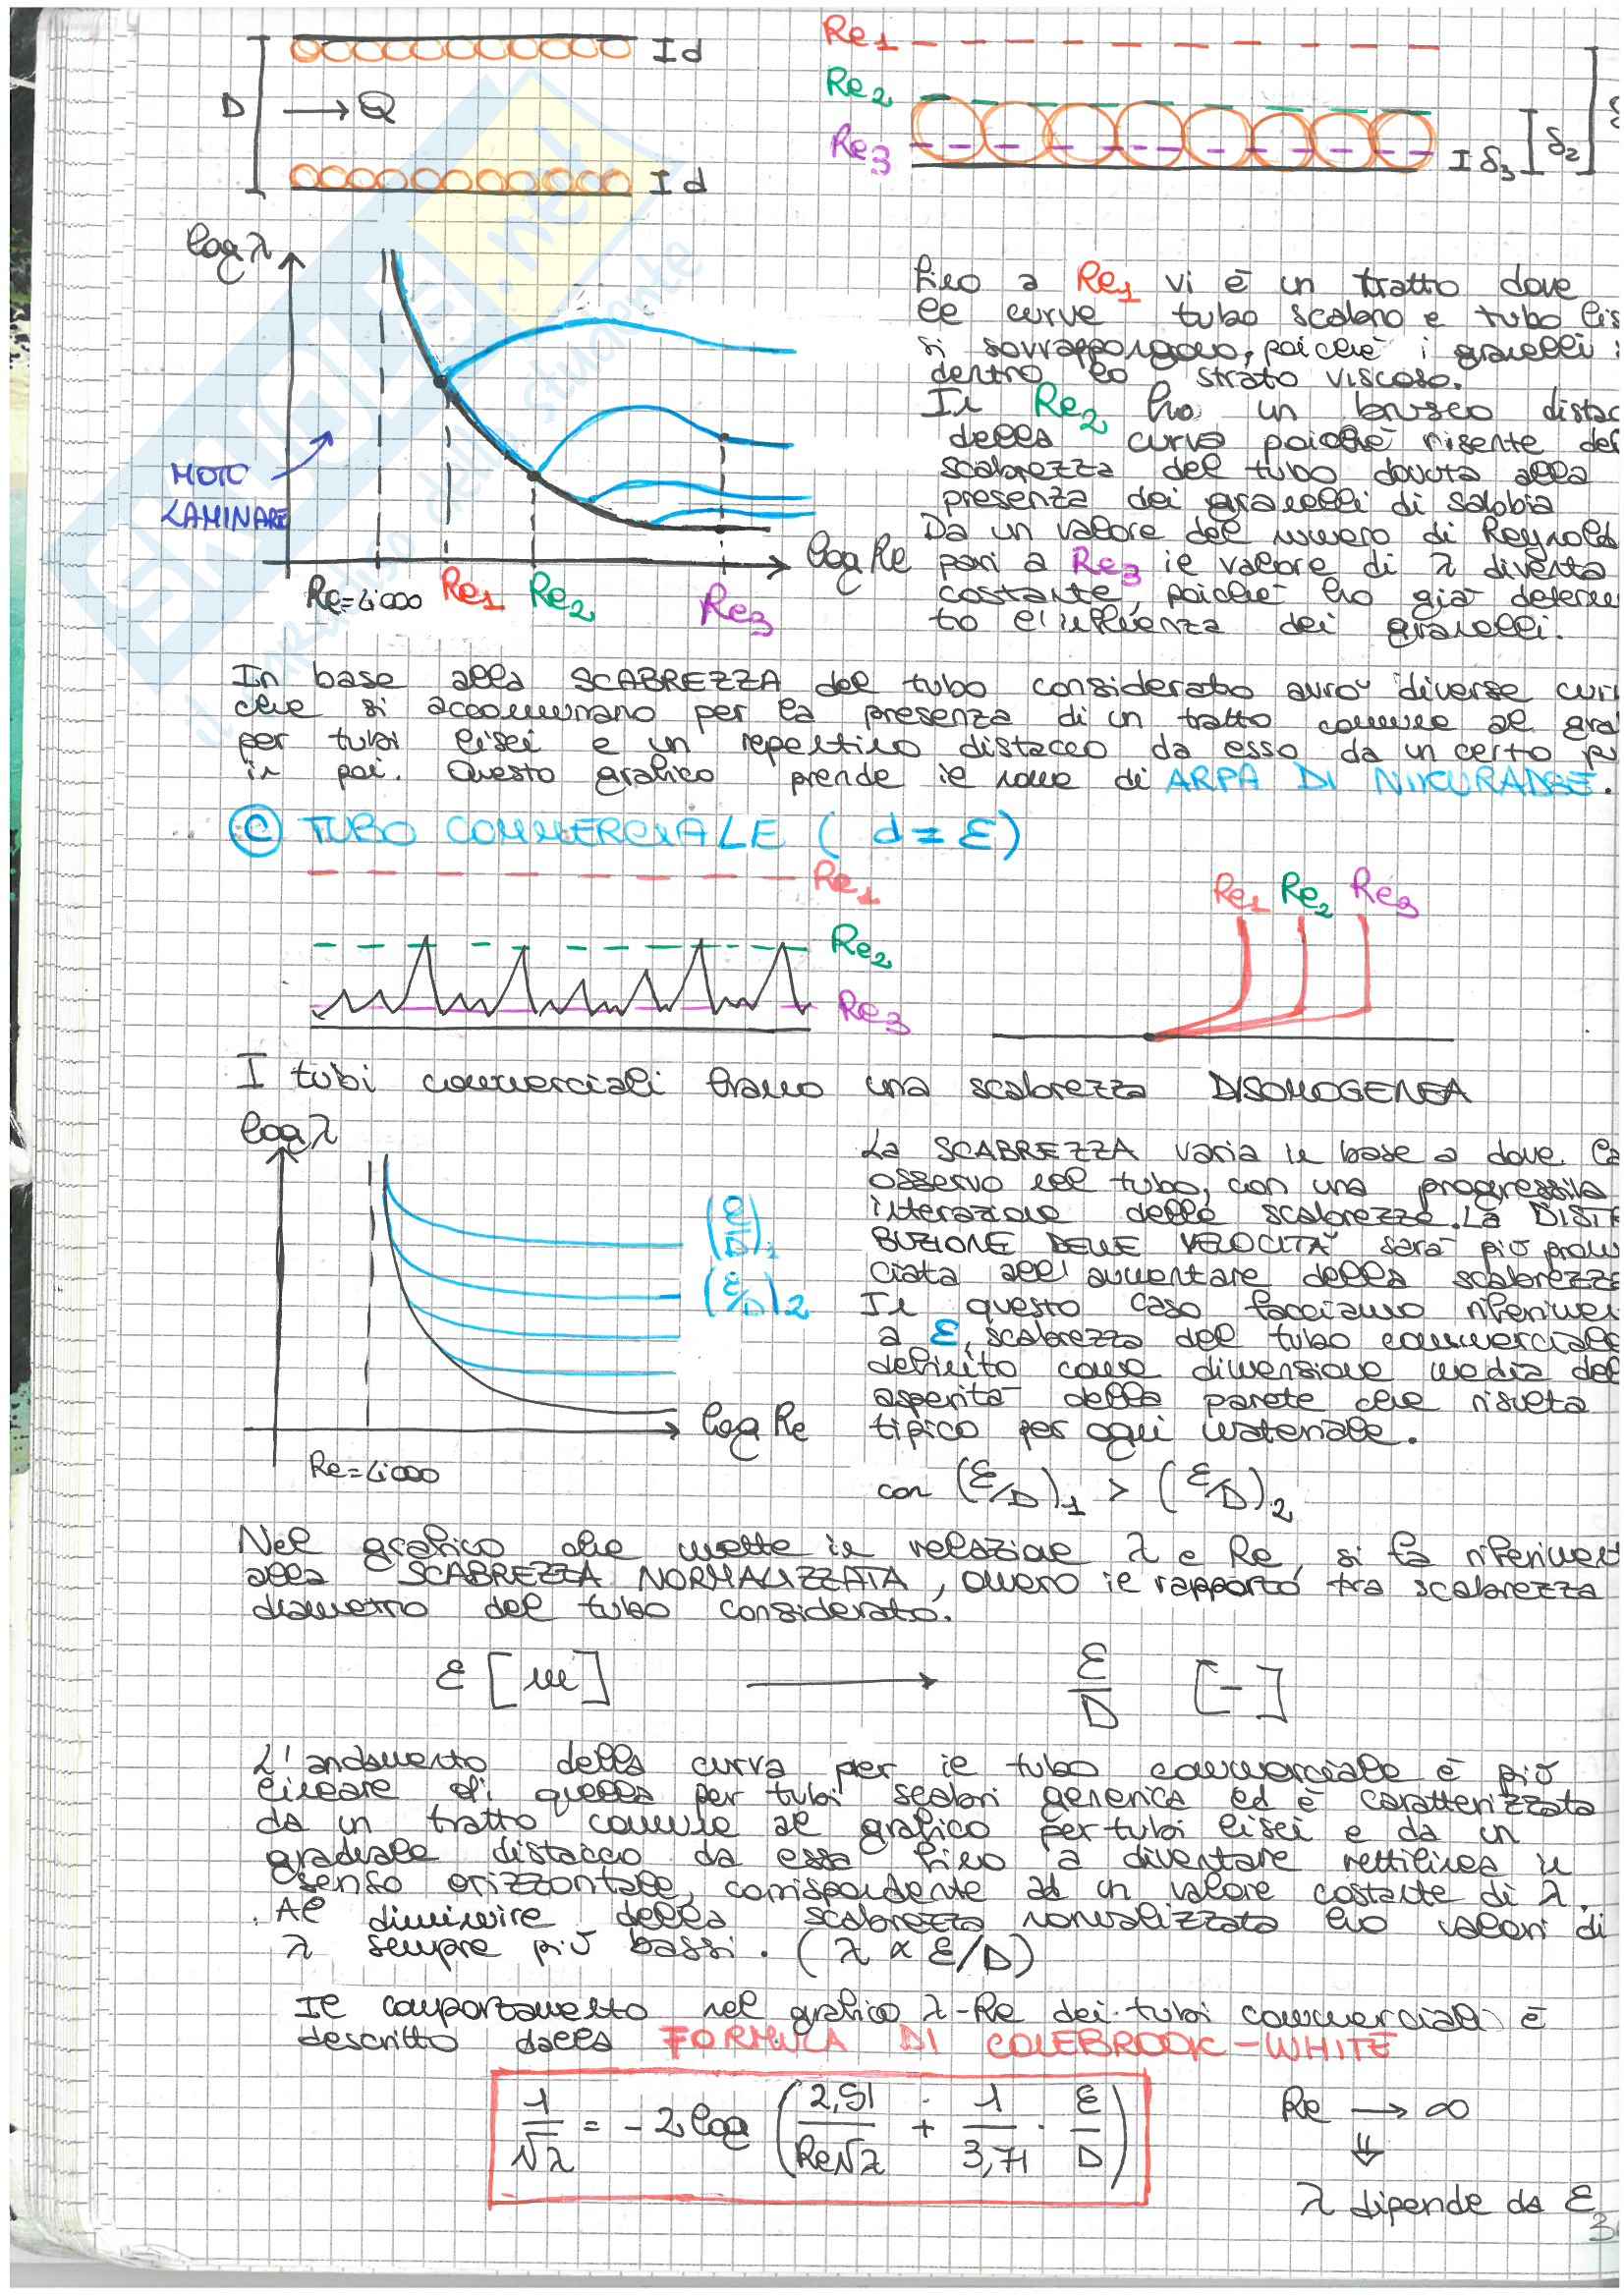 I d
D
→ Q
I d
Re1
Re2
Re3
I δ3
δ2
log λ
MOTO
LAMINARE
Re=4000
Re1
Re2
Re3
log Re
Fino a Re1 vi è un tratto dove
le curve tubo scabro e tubo lis
si sovrappongono, poiché i granelli
dentro lo strato viscoso.
In Re2 ho un brusco distac
della curva poiché risente del
scabrezza del tubo dovuta alla
presenza dei granelli di sabbia
Da un valore del numero di Reynolds
pari a Re3 il valore di λ diventa
costante, poiché ho già determi
to l'influenza dei granelli.
In base alla SCABREZZA del tubo considerato avrò diverse curv
che si accomunano per la presenza di un tratto comune al gra
per tubi lisci e un repentino distacco da esso da un certo pu
in poi. Questo grafico prende il nome di ARPA DI NIKURADSE.
C TUBO COMMERCIALE ( d = ε )
Re1
Re2
Re3
Re1 Re2 Re3
I tubi commerciali hanno una scabrezza DISOMOGENEA
log λ
(ε/D)1
(ε/D)2
log Re
Re=4000
La SCABREZZA varia in base a dove la
osservo nel tubo, con una progressiva
iterazione delle scabrezze. La DISTR
BUZIONE DELLE VELOCITÀ sarà più pronun
ciata all'aumentare della scabrezza
In questo caso facciamo riferimen
a ε, scabrezza del tubo commerciale
definito come dimensione media del
asperità della parete che risulta
tipico per ogni materiale.
con (ε/D)1 > (ε/D)2
Nel grafico che mette in relazione λ e Re, si fa riferiment
alla SCABREZZA NORMALIZZATA, ovvero il rapporto tra scabrezza
diametro del tubo considerato.
ε [m] → ε/D [-]
L'andamento della curva per il tubo commerciale è più
lineare di quella per tubi scabri generica ed è caratterizzata
da un tratto comune al grafico per tubi lisci e da un
graduale distacco da essa fino a diventare rettilinea in
senso orizzontale, corrispondente ad un valore costante di λ.
Al diminuire della scabrezza normalizzata ho valori di
λ sempre più bassi. (λ ∝ ε/D)
Il comportamento nel grafico λ-Re dei tubi commerciali è
descritto dalla FORMULA DI COLEBROOK-WHITE
1/√λ = -2 log (2,51/Re√λ + 1/3,71 · ε/D)
Re → ∞
⇓
λ dipende da ε